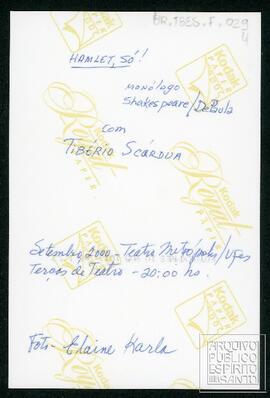 BR.TBES.F.029
4
HAMLET, SÓ!
monólogo
Shakespeare/DeBula
com
TIBÉRIO SCÁRDUA
Setembro, 2000 - Teatro Metrópolis/Ufes
Terças de Teatro - 20:00 hs.
Foto - Elaine Karla
Kodak
Royal
PAPER
ARQUIVO
PÚBLICO
ESPÍRITO
SANTO